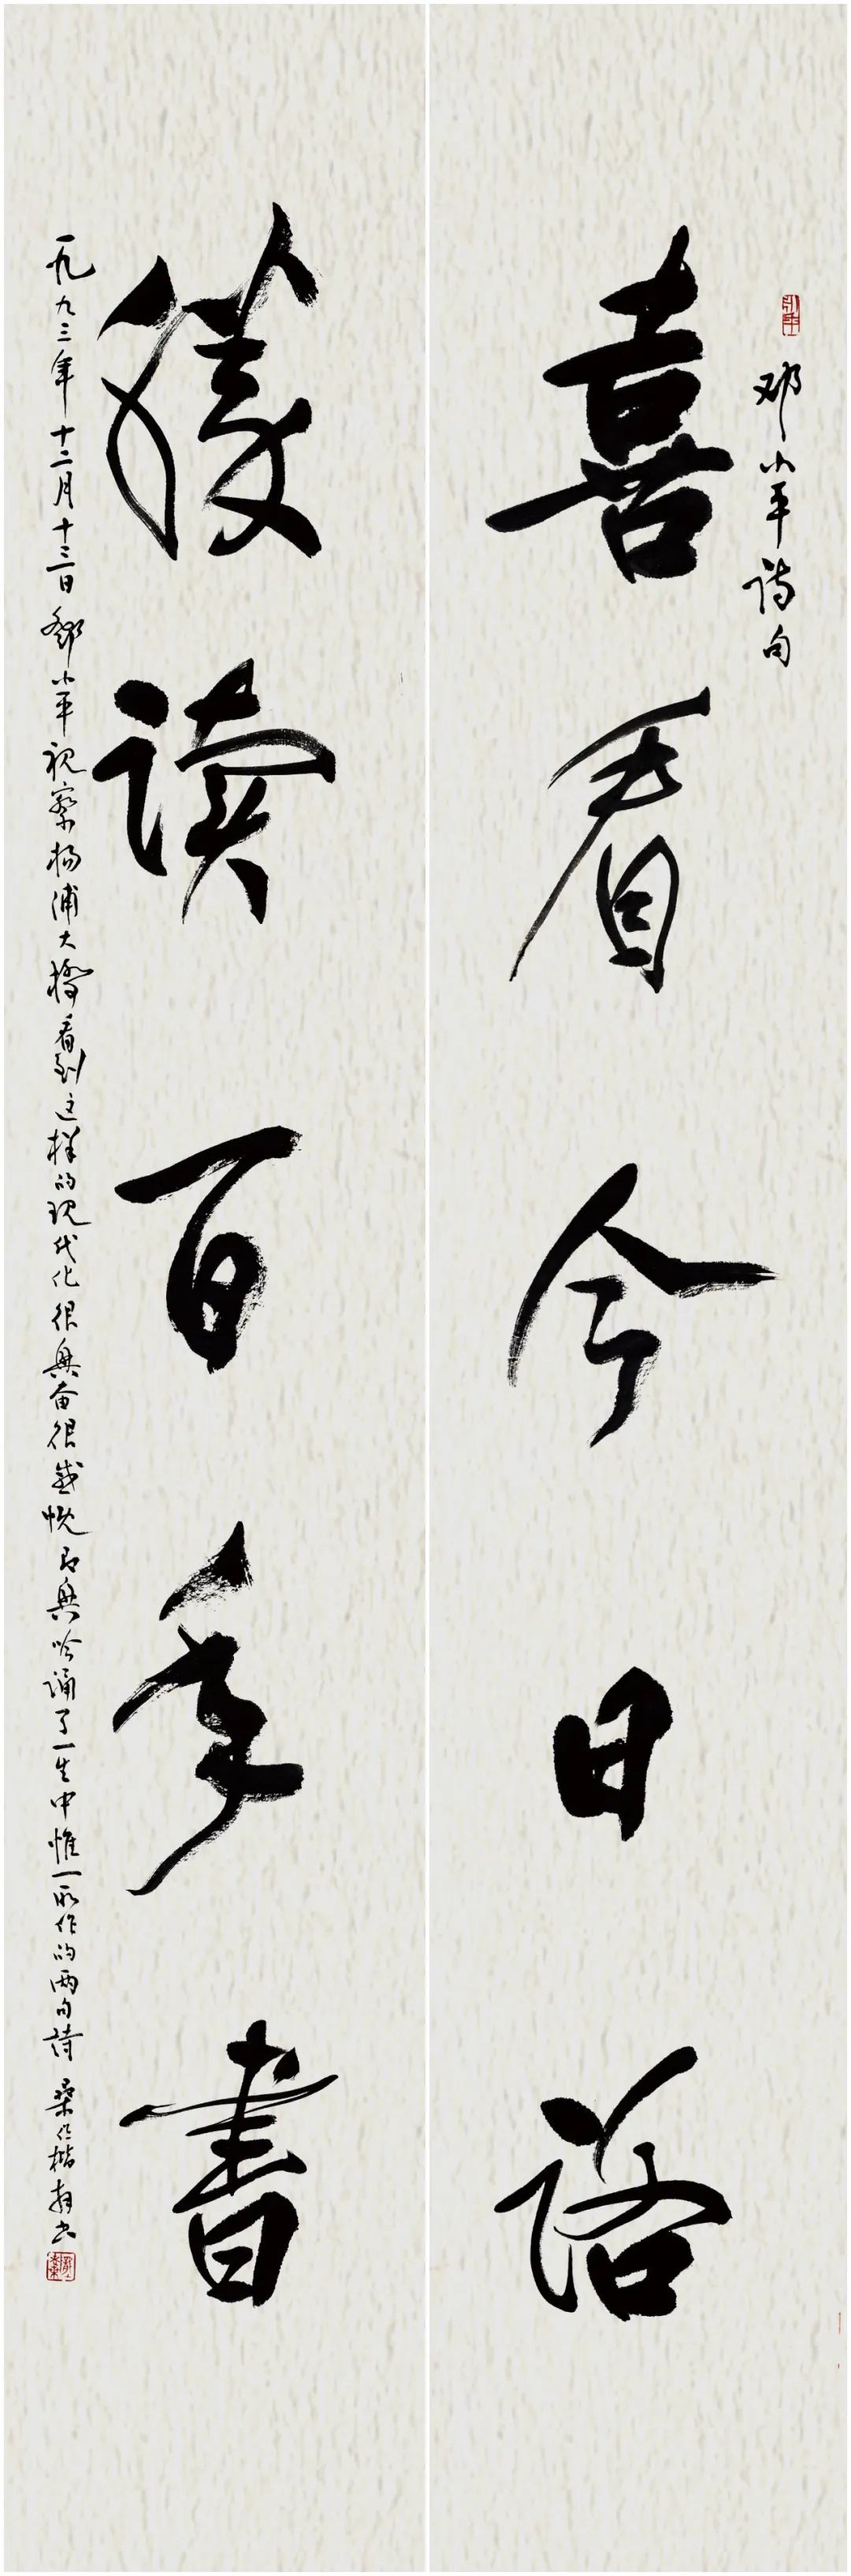 邓小平诗句
喜看今日路
勝读百年書
一九九三年十二月十三日鄧小平视察杨浦大橋看到这样的现代化很興奋很感慨即興吟诵了一生中惟一所作的两句詩 桑作楷书